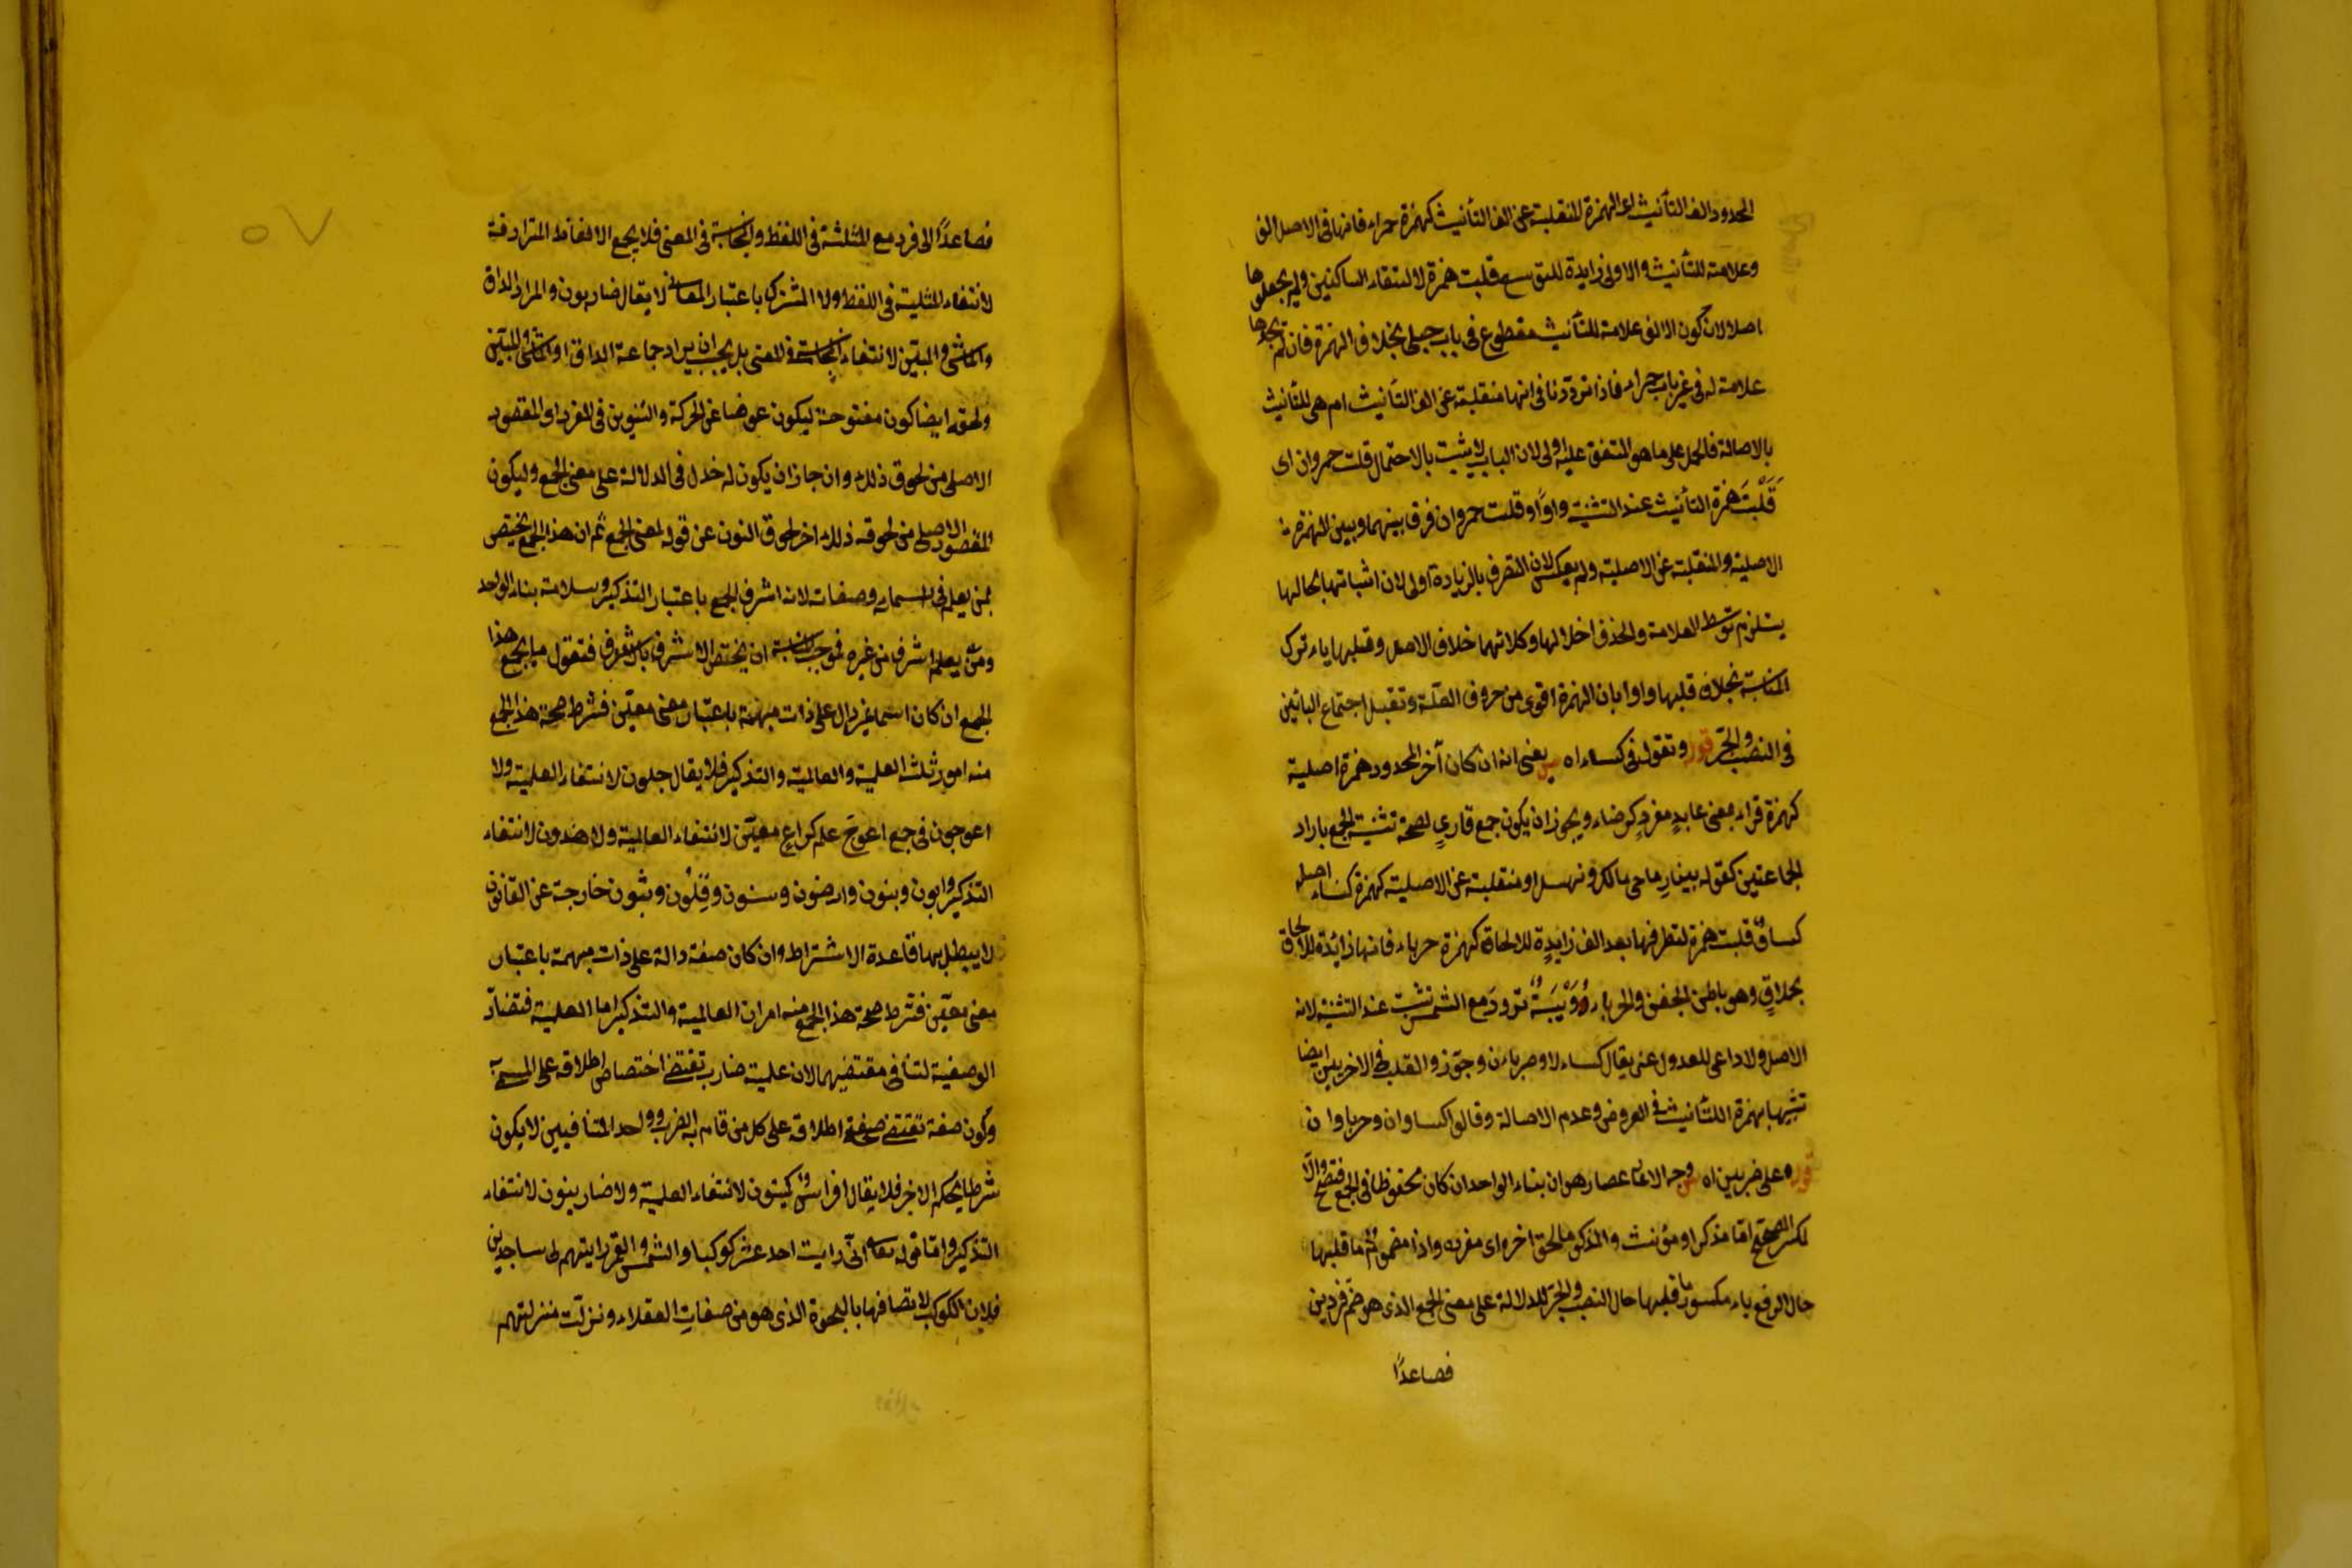 الممدود الف التأنيث اعنى الهمزة المنقلبة عن الف التأنيث كهمزة حمراء فانها فى الاصل الف
وعلامة للتأنيث والاولى زايدة للتوسع قلبت همزة لالتقاء الساكنين ولم يجعلوها
اصلا لان كون الالف علامة للتأنيث مقطوع فى باب حبلى بخلاف الهمزة فان لم يجدها
علامة له فى غير باب حمراء فاذا ترددنا فى انها منقلبة عن الف التأنيث ام هى للتأنيث
بالاصالة فالحمل على ما هو المتفق عليه اولى لان الباب لا يثبت بالاحتمال قلت حمروان اى
قلبت همزة التأنيث عند التثنية واوا وقلت حمروان فرقا بينهما وبين الهمزة
الاصلية والمنقلبة عن الاصلية ولم يعكس لان التصرف بالزيادة اولى لان اثباتها بحالها
يستلزم توسط العلامة والحذف اخلالها وكلاهما خلاف الاصل وقلبها ياء ترك
المناسبة بخلاف قلبها واوا بان الهمزة اقوى من حروف العلة وتقبل اجتماع اليائين
فى النصب والجر قوله وتقول فى كساء اه يعنى انه ان كان آخر الممدود همزة اصلية
كهمزة قراء بمعنى عابد مفرد كرضاء ويجوز ان يكون جمع قارئ لصحة تثنية الجمع باراد
الجماعتين كقوله بين رماحى مالك ونهشل او منقلبة عن الاصلية كهمزة كساء اصله
كساو قلبت همزة لتطرفها بعد الف زايدة للالحاق كهمزة حرباء فانها زائدة للالحاق
بحملاق وهو باطن الجفن والحرباء دويبة تدور مع الشمس تثبت عند التثنية لانه
الاصل ولا داعى للعدول عنه يقال كساءان وحرباءان وجوزوا القلب فى الاخريين ايضا
تشبيها بهمزة التأنيث فى العروض وعدم الاصالة وقالوا كساوان وحرباوان
قوله على ضربين اه وجه الانحصار هو ان بناء الواحد ان كان محفوظا فى الجمع فصحيح والا
مكسر الصحيح اما مذكر او مؤنث والمذكر ما لحق اخره اى مفرده واو مضموم ما قبلها
حال الرفع ياء مكسور ما قبلها حال النصب والجر للدلالة على معنى الجمع الذى هو ضم فردين
فصاعدًا
٥٧
فصاعدًا الى فرد مع المثلثة فى اللفظ والمجانسة فى المعنى فلا يجمع الالفاظ المترادفة
لانتفاء المثلية فى اللفظ ولا المشترك باعتبار المعانى لا يقال ضاربون والمراد الداق
والماشى والمبين لانتفاء المجانسة فى المعنى بل يجب ان يراد جماعة الداق او الماشى او المبين
ولحقه ايضا كون مفتوحة ليكون عوضا عن الحركة والتنوين فى المفرد او المقصود
الاصلى من لحوق ذلك وان جاز ان يكون له دخل فى الدلالة على معنى الجمع وليكون
المقصود الاصلى من لحوقه ذلك اخر لحوق النون عن قوله لمعنى الجمع ثم ان هذا الجمع يختص
بمن يعلم فى اسمائه وصفاته لانه اشرف الجمع باعتبار التذكير وسلامة بناء الواحد
ومن يعلم اشرف من غيره فوجب المناسبة ان يختص الاشرف بالاشرف فنقول ما يجمع هذا
الجمع ان كان اسما غير دال على ذات مبهمة باعتبار معنى معين فشرط صحة هذا الجمع
منه امور ثلثة العلمية والعالمية والتذكير فلا يقال رجلون لانتفاء العلمية ولا
اعوجون فى جمع اعوج علم كراع معين لانتفاء العالمية ولا هندون لانتفاء
التذكير وابون وبنون وارضون وسنون وقلون وثبون خارجة عن القانون
لا يبطل بها قاعدة الاشتراط وان كان صفة دالة على ذات مبهمة باعتبار
معنى معين فشرط صحة هذا الجمع منه امران العالمية والتذكير اما العلمية فتضاد
الوصفية لتنافى مقتضيهما لان علمية ضارب تقتضى اختصاص اطلاقه على المسمى
وكون صفة تقتضى صحة اطلاقه على كل من قام به الضرب وواحد المتنافيين لا يكون
شرطا لحكم الاخر فلا يقال افراس كميتون لانتفاء العلمية ولا ضاربتون لانتفاء
التذكير واما قوله تعالى انى رايت احد عشر كوكبا والشمس والقمر رايتهم لى ساجدين
فلان الكوكب لاتصافها بالسجود الذى هو من صفات العقلاء ونزلت منزلتهم